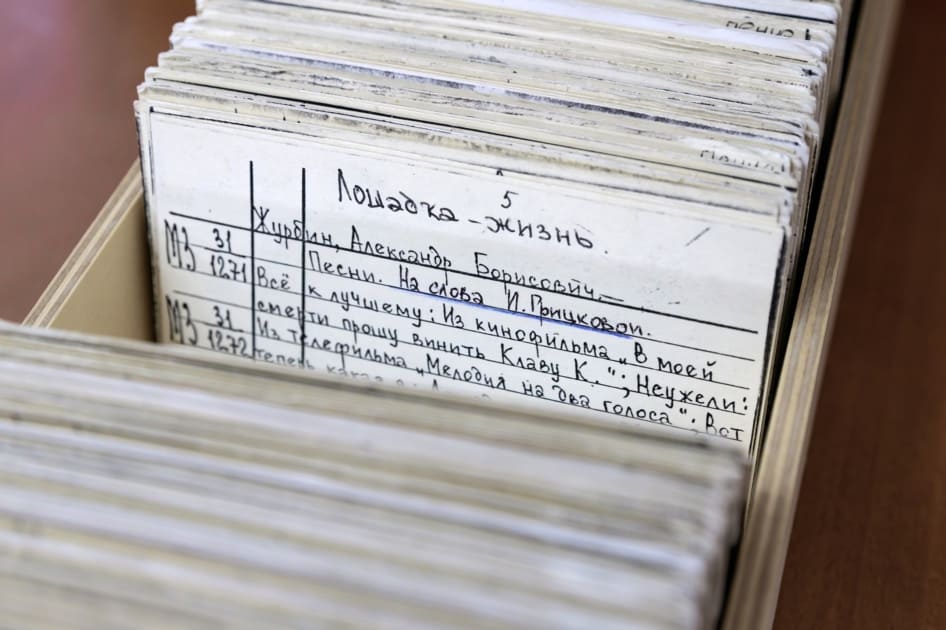 пение
5
Лошадка - жизнь.
Журбин, Александр Борисович. —
МЗ 31 Песни. На слова И. Грицковой.
1271 Всё к лучшему: Из кинофильма „В моей
смерти прошу винить Клаву К."; Неужели:
МЗ 31 Из телефильма „Мелодия на два голоса"; Вот
1272 теперь